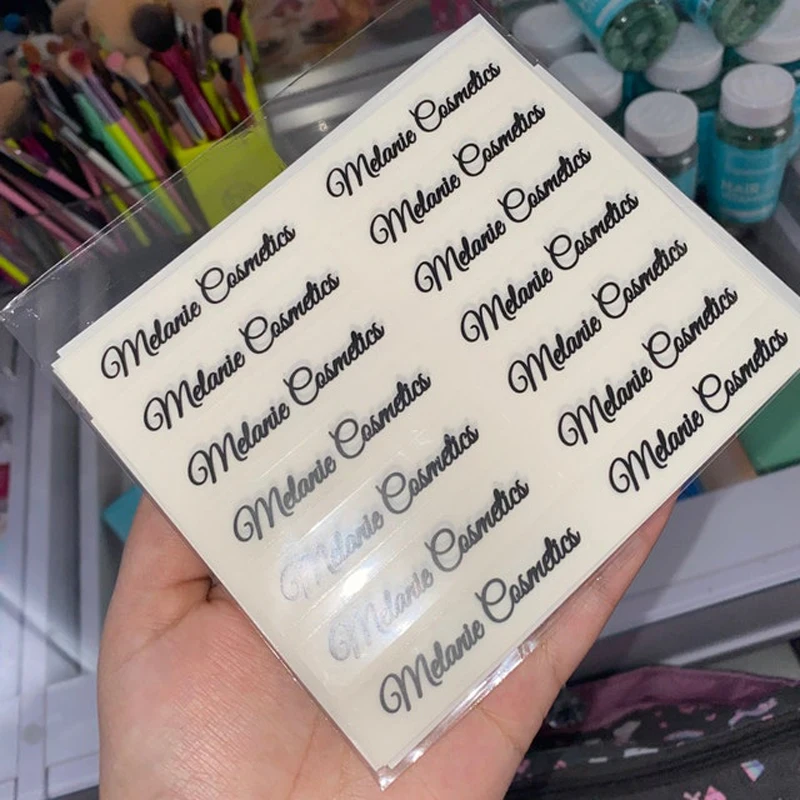 Melanie Cosmetics
Melanie Cosmetics
Melanie Cosmetics
Melanie Cosmetics
Melanie Cosmetics
Melanie Cosmetics
Melanie Cosmetics
Melanie Cosmetics
Melanie Cosmetics
Melanie Cosmetics
Melanie Cosmetics
Melanie Cosmetics
Melanie Cosmetics
Melanie Cosmetics
HAIR